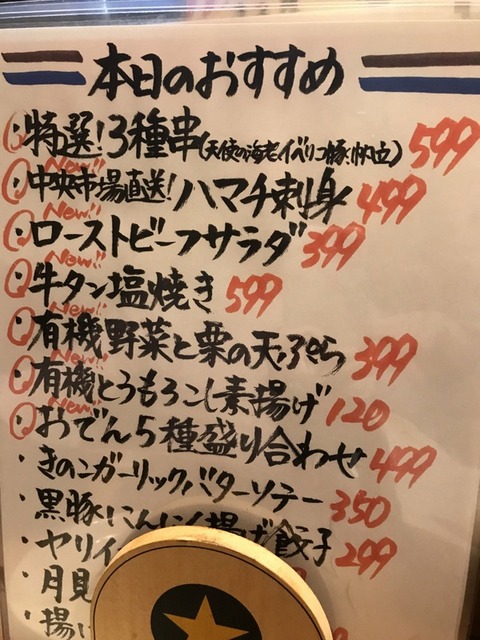 本日のおすすめ
・特選!3種串(天使の海老、イベリコ豚、帆立) 599
New!!
・中央市場直送!ハマチ刺身 499
New!!
・ローストビーフサラダ 399
New!!
・牛タン塩焼き 599
New!!
・有機野菜と栗の天ぷら 399
New!!
・有機とうもろこし素揚げ 120
New!!
・おでん5種盛り合わせ 499
・きのこガーリックバターソテー 350
・黒豚にんにく揚げ餃子 299
・ヤリイ
・月見
・揚げ